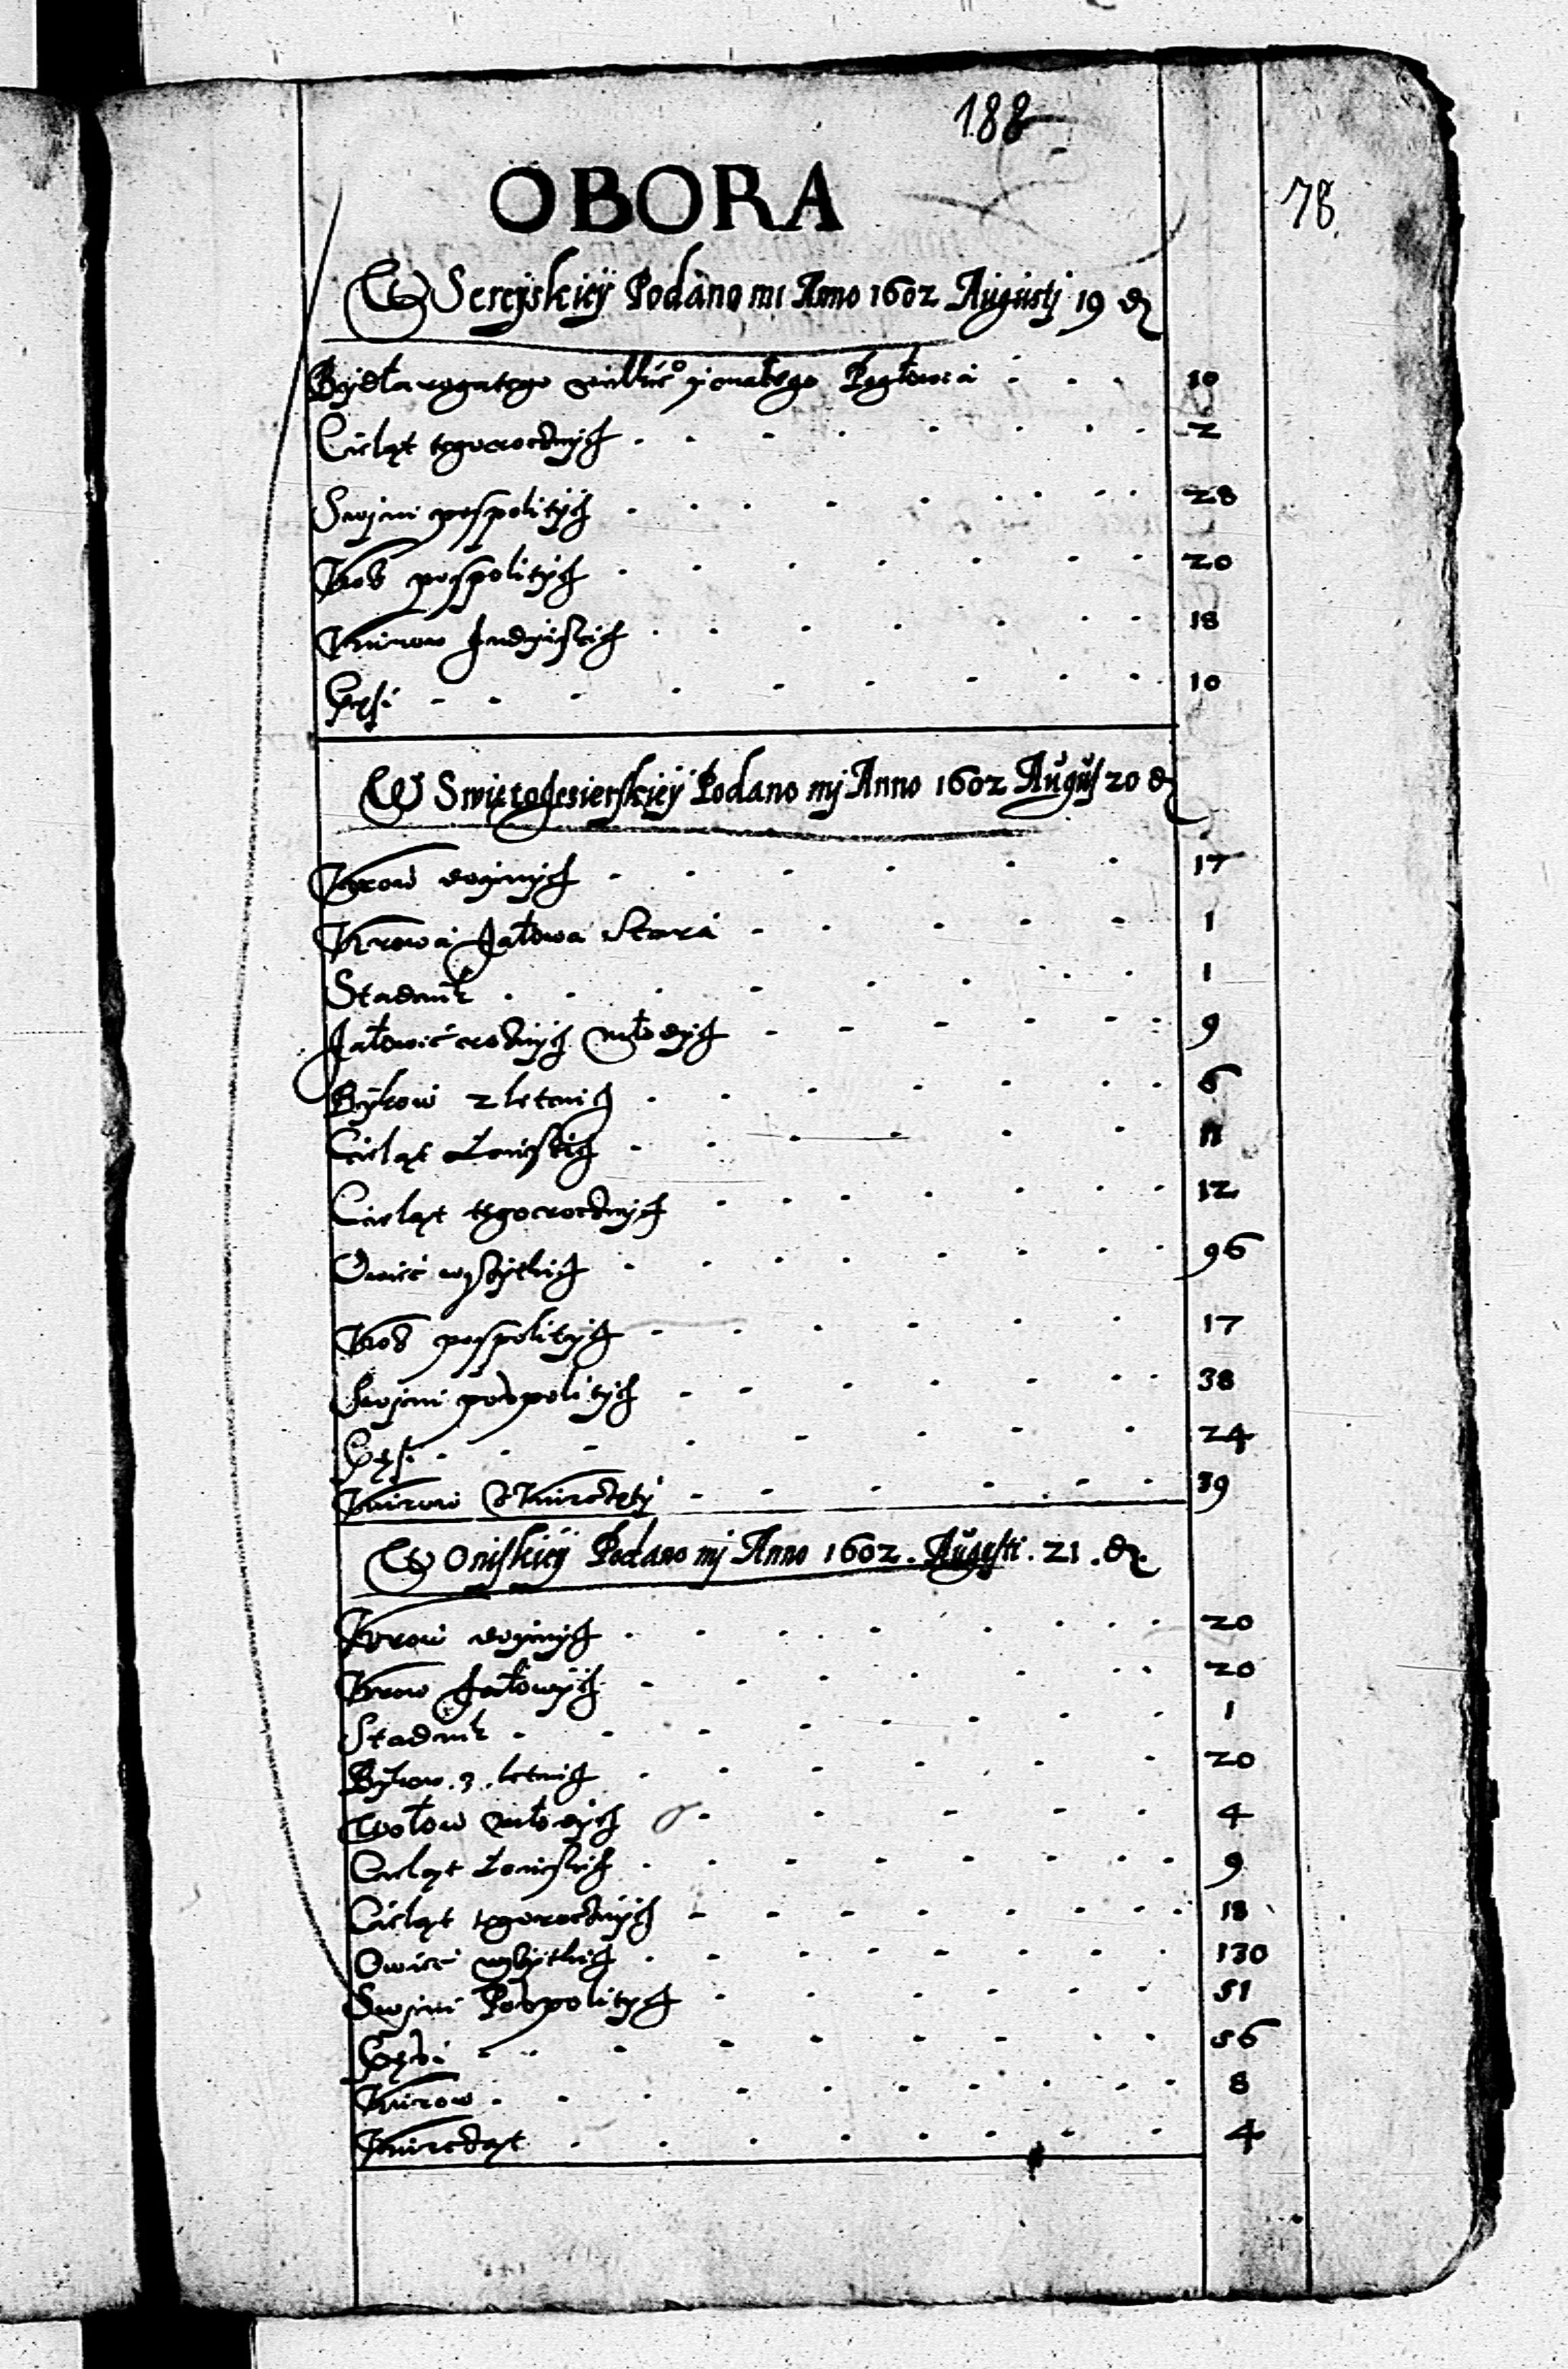 188
78
OBORA
W Serejskiey Podano mi Anno 1602 Augustj 19 d
Bydła rogatego wielkieo y małego Pogłowia 10
Cieląt tegorocznych 2
Swini pospolitych 28
Koz pospolitych 20
Kurow Indyiskich 18
Gęsi 10
W Swiętoiesierskiey Podano mj Anno 1602 Augus 20 d
Krow doynych 17
Krowa Jałowa Stara 1
Stadnik 1
Jałowic rocznych młodych 9
Bykow 2 letnich 6
Cieląt Łonskich 11
Cieląt tegorocznych 12
Owiec wszytkich 96
Koz pospolitych 17
Swini pospolitych 38
Gęsi 24
Kurow z Kurczęty 39
W Oniskiey Podano mj Anno 1602. Augusti. 21. d
Krow doynych 20
Krow Jałowych 20
Stadnik 1
Bykow. 3. letnich 20
Wołow młodych 4
Cieląt Łonskich 9
Cieląt tegorocznych 18
Owiec wszytkich 130
Swini Pospolitych 51
Gęsi 56
Kurow 8
Kurcząt 4